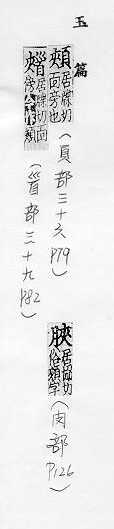 玉篇
頰 居牒切
面旁也
(頁部三十六
P79)
居牒切面
旁今作頰
部三十九
P82)
脥 居協切
俗頰字
(肉部
P126)